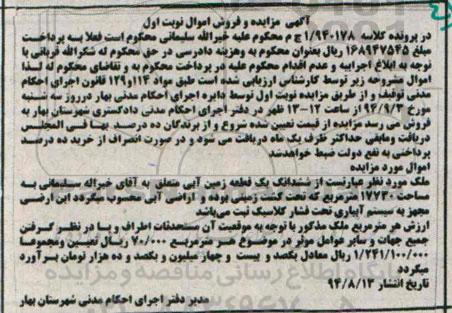 آگهی مزایده و فروش اموال نوبت اول
در پرونده کلاسه ۱/۹۴۰۱۷۸ ج م محکوم علیه خیراله سلیمانی محکوم است فعلا به پرداخت
مبلغ ۱۶۸۹۴۷۵۴۵ ریال بعنوان محکوم به وهزینه دادرسی در حق محکوم له شکراله قربانی با
توجه به ابلاغ اجراییه و عدم اقدام محکوم علیه در پرداخت محکوم به و تقاضای محکوم له لذا
اموال مشروحه زیر توسط کارشناس ارزیابی شده است طبق مواد ۱۱۴و۱۲۹ قانون اجرای احکام
مدنی توقیف و از طریق مزایده نوبت اول توسط دایره اجرای احکام مدنی بهار درروز سه شنبه
مورخ ۹۴/۹/۳ از ساعت ۱۲-۱۳ ظهر در دفتر اجرای احکام مدنی دادگستری شهرستان بهار به
فروش می رسد مزایده از قیمت تعیین شده شروع و از برندگان ده درصد بها فی المجلس
دریافت ومابقی حداکثر ظرف یک ماه دریافت می شود و در صورت انصراف از خرید ده درصد
پرداختی به نفع دولت ضبط خواهدشد
اموال مورد مزایده
ملک مورد نظر عبارتست از ششدانگ یک قطعه زمین آبی متعلق به آقای خیراله سلیمانی به
مساحت ۱۷۷۳۰ مترمربع که تحت کشت زمینی بوده و اراضی آبی محسوب میگردد این ارضی
مجهز به سیستم آبیاری تحت فشار کلاسیک ثبت می باشد
ارزش هر مترمربع ملک مذکور با توجه به موقعیت آن مستحدثات اطراف و با در نظر گرفتن
جمیع جهات و سایر عوامل موثر در موضوع هر مترمربع ۷۰/۰۰۰ ریال تعیین ومجموعا
۱/۲۴۱/۱۰۰/۰۰۰ ریال معادل یکصد و بیست و چهار میلیون و یکصد و ده هزار تومان برآورد
میگردد
تاریخ انتشار ۹۴/۸/۱۳
مدیر دفتر اجرای احکام مدنی شهرستان بهار